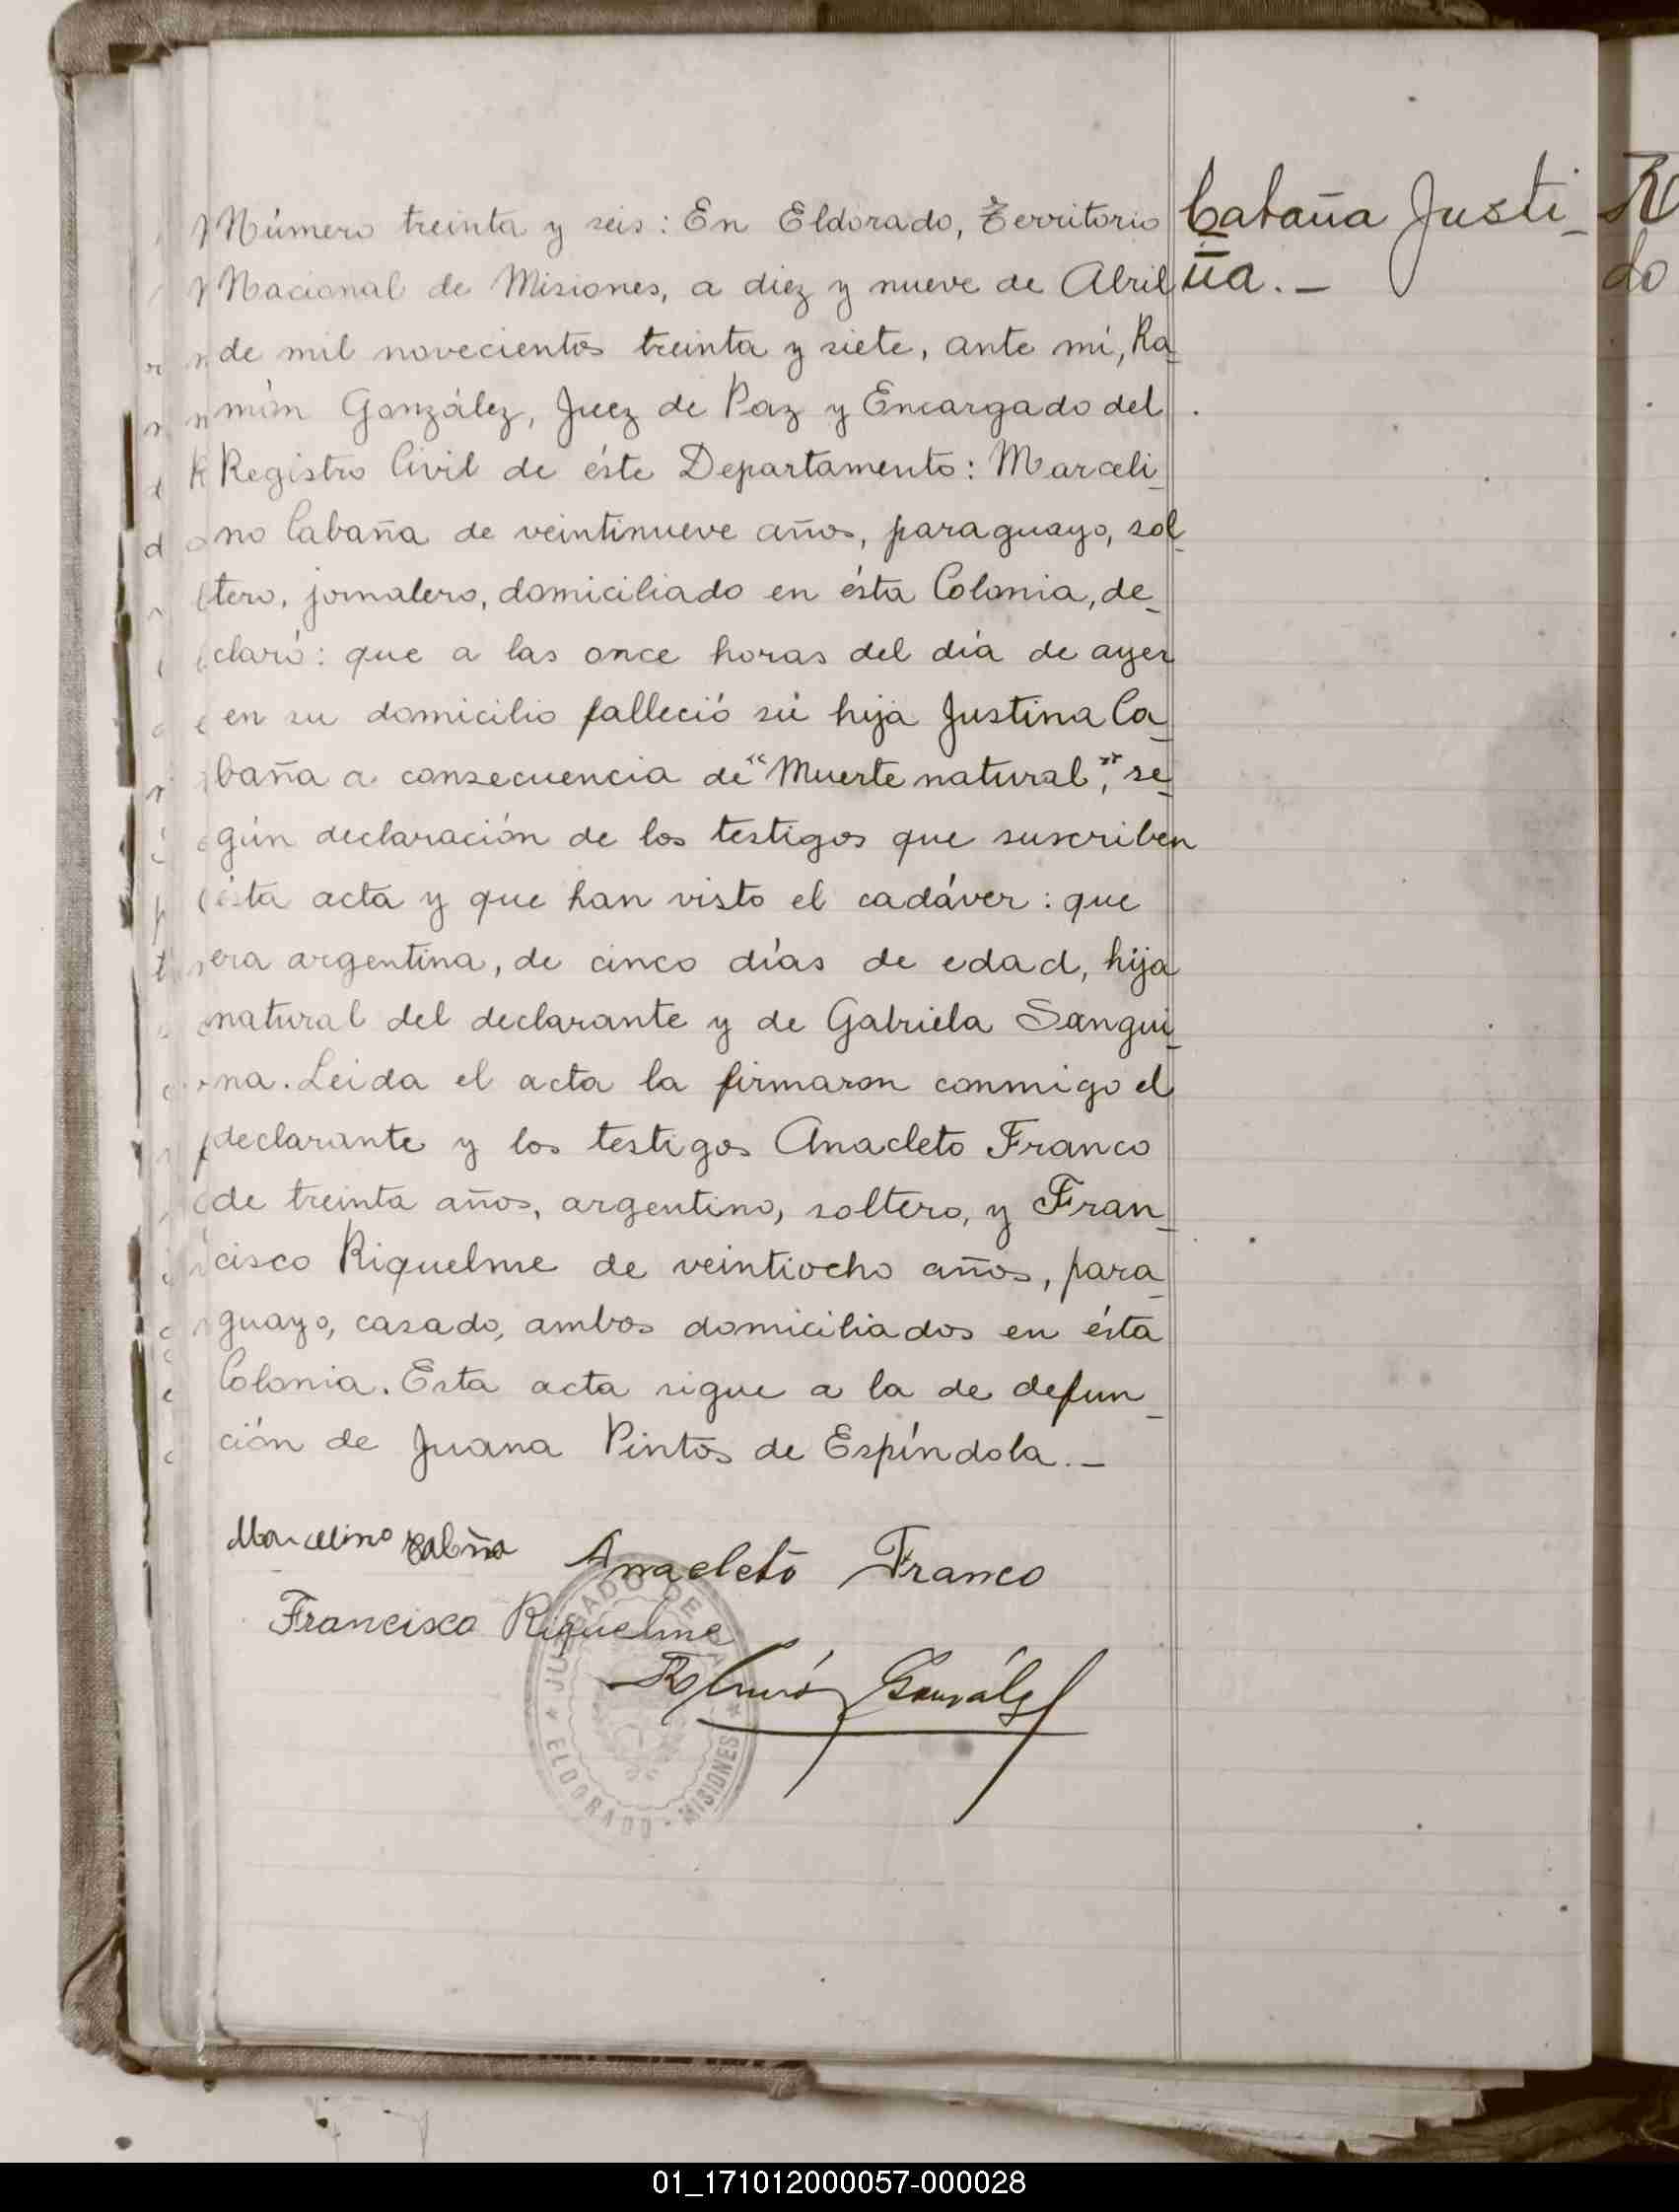 Número treinta y seis: En Eldorado, Territorio
Nacional de Misiones, a diez y nueve de Abril
de mil novecientos treinta y siete, ante mí, Ra_
món González, Juez de Paz y Encargado del
Registro Civil de éste Departamento: Marceli_
no Cabaña de veintinueve años, paraguayo, sol_
tero, jornalero, domiciliado en ésta Colonia, de_
claró: que a las once horas del día de ayer
en su domicilio falleció sú hija Justina Ca_
baña a consecuencia de "Muerte natural", se_
gún declaración de los testigos que suscriben
ésta acta y que han visto el cadáver: que
era argentina, de cinco días de edad, hija
natural del declarante y de Gabriela Sangui_
na. Leida el acta la firmaron conmigo el
declarante y los testigos Anacleto Franco
de treinta años, argentino, soltero, y Fran_
cisco Riquelme de veintiocho años, para_
guayo, casado, ambos domiciliados en ésta
Colonia. Esta acta sigue a la de defun_
ción de Juana Pintos de Espíndola._
Cabaña Justi_
na._
Marcelino Cabaña
Anacleto Franco
Francisco Riquelme
Ramón González
JUZGADO DE PAZ
★ ELDORADO - MISIONES ★
01_171012000057-000028